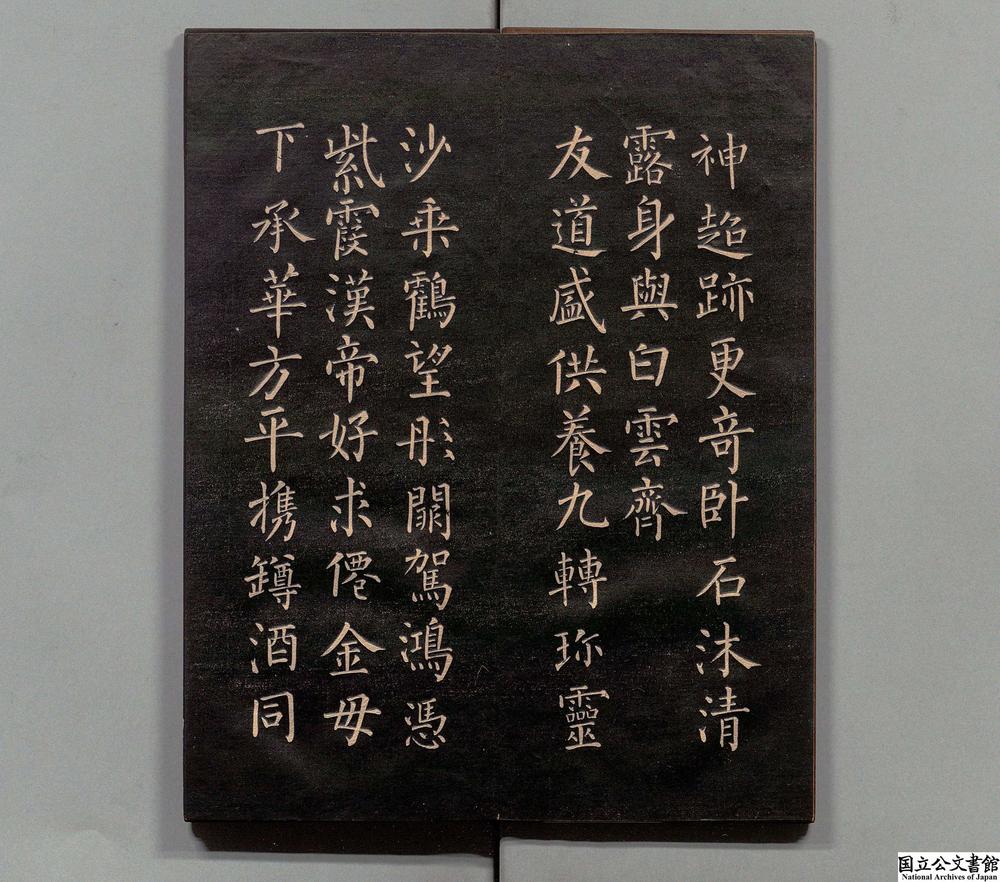 神超跡更奇卧石沐清
露身與白雲齊
友道盛供養九轉珎靈
沙乗鶴望彤闕駕鴻憑
紫霞漢帝好求僊金毋
下承華方平携罇酒同
国立公文書館
National Archives of Japan